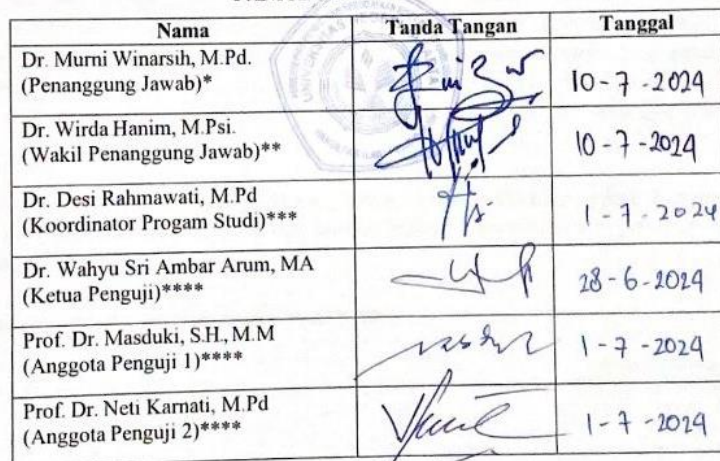 Nama Tanda Tangan Tanggal
Dr. Murni Winarsih, M.Pd.
(Penanggung Jawab)* 10-7-2024
Dr. Wirda Hanim, M.Psi.
(Wakil Penanggung Jawab)** 10-7-2024
Dr. Desi Rahmawati, M.Pd
(Koordinator Progam Studi)*** 1-7-2024
Dr. Wahyu Sri Ambar Arum, MA
(Ketua Penguji)**** 28-6-2024
Prof. Dr. Masduki, S.H., M.M
(Anggota Penguji 1)**** 1-7-2024
Prof. Dr. Neti Karnati, M.Pd
(Anggota Penguji 2)**** 1-7-2024